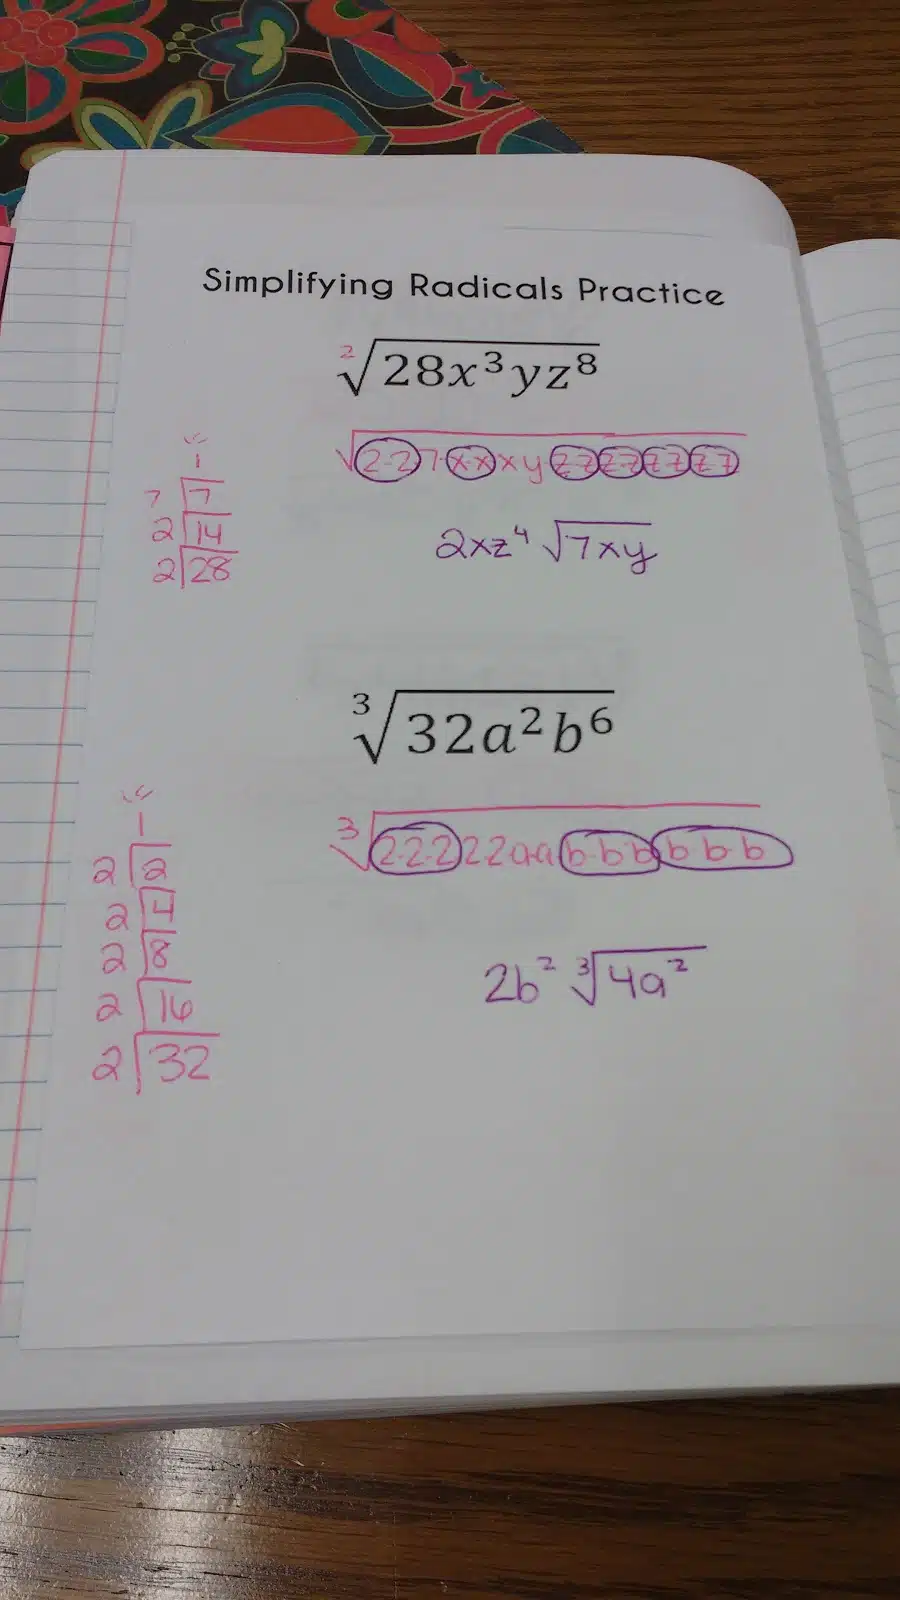 Simplifying Radicals Practice
²√28x³yz⁸
√2·2 7·x·x x y z·z z·z z·z z·z
1
7 7
2 14
2 28
2xz⁴ √7xy
³√32a²b⁶
³√2·2·2 2·2 a·a b·b·b b·b·b
1
2 2
2 4
2 8
2 16
2 32
2b² ³√4a²